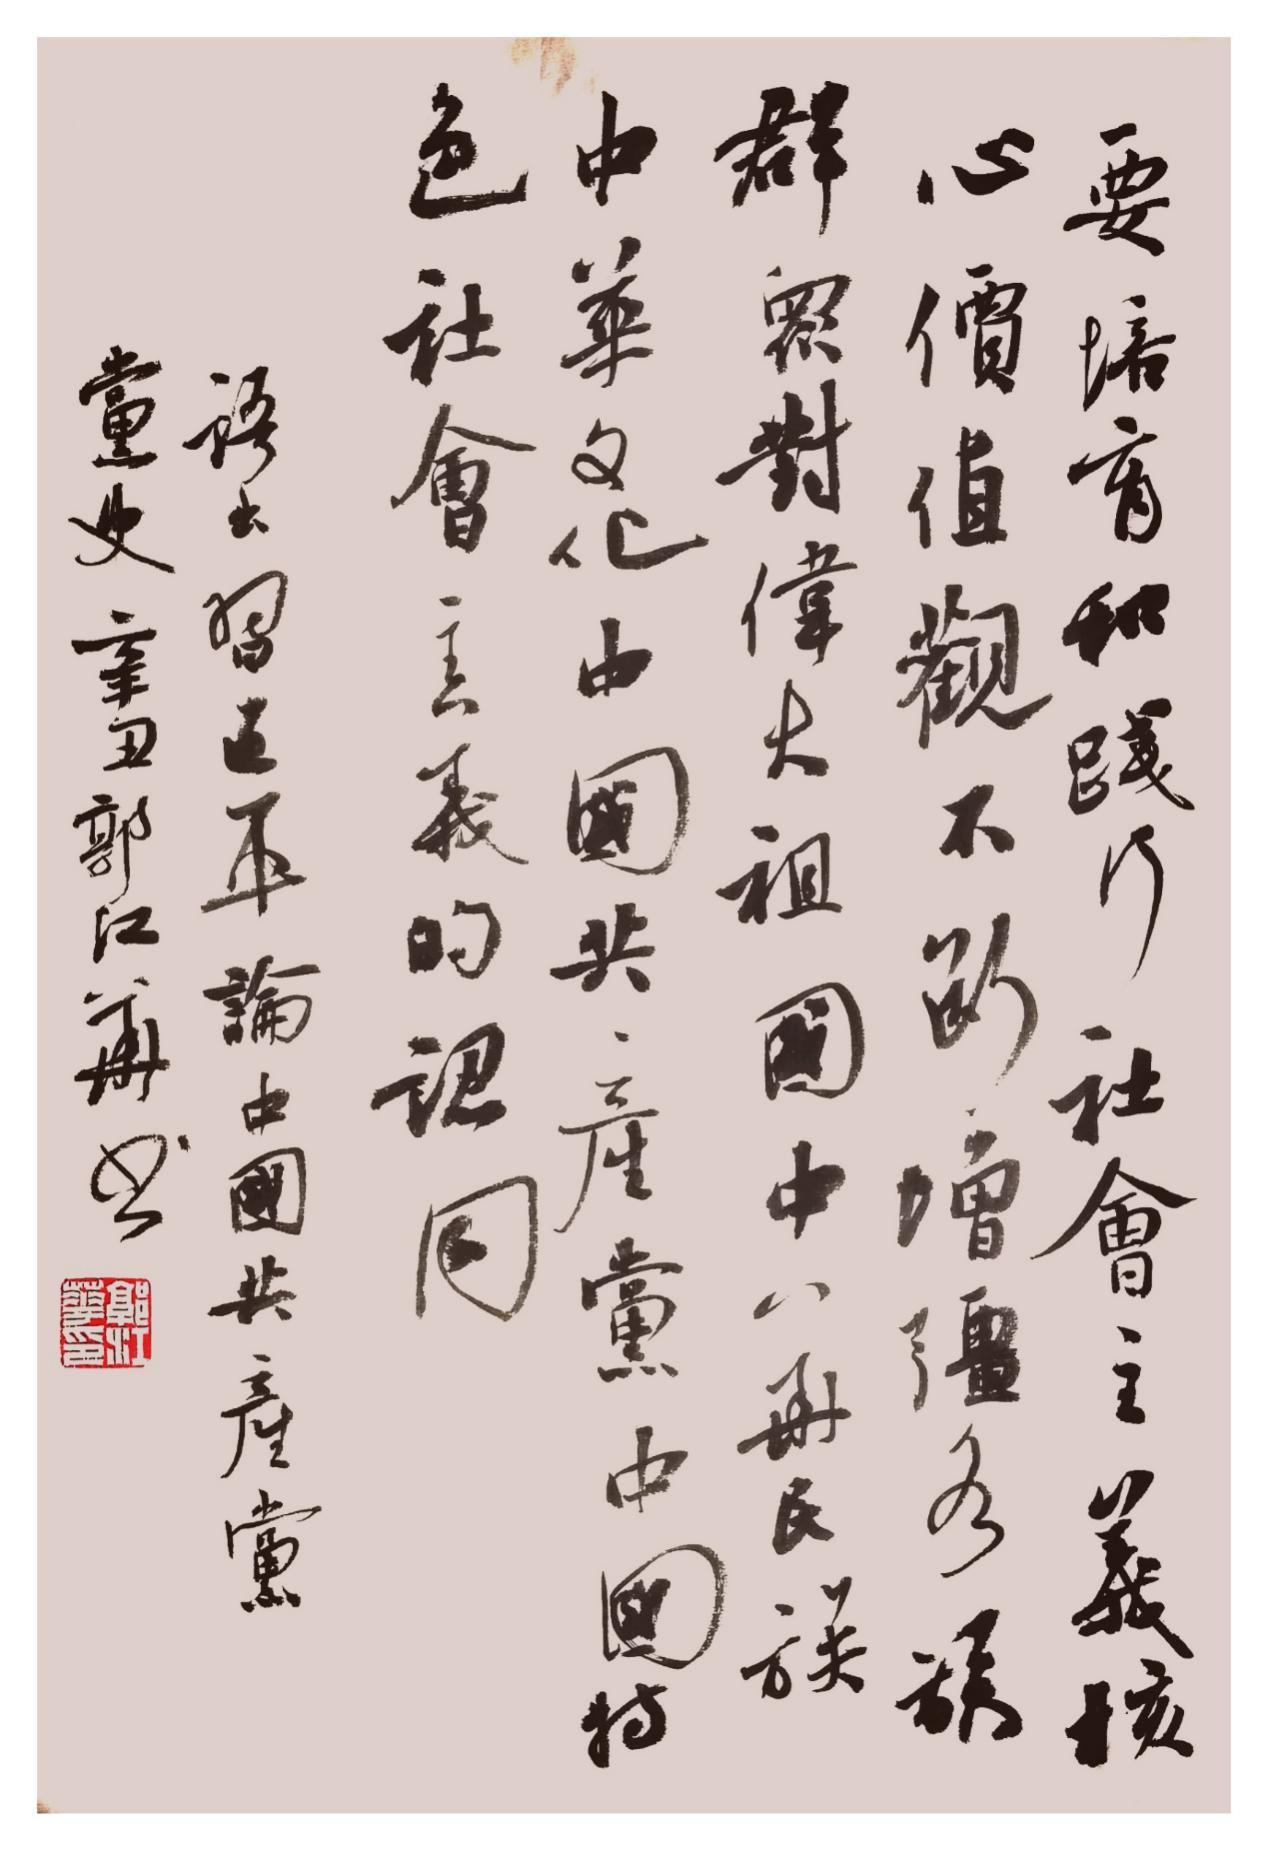 要培育和踐行社會主義核
心價值觀不斷增彊各族
群眾對偉大祖國中華民族
中華文化中國共產黨中國特
色社會主義的認同
語出習近平論中國共產黨
黨史辛丑郭江華書
郭江華印